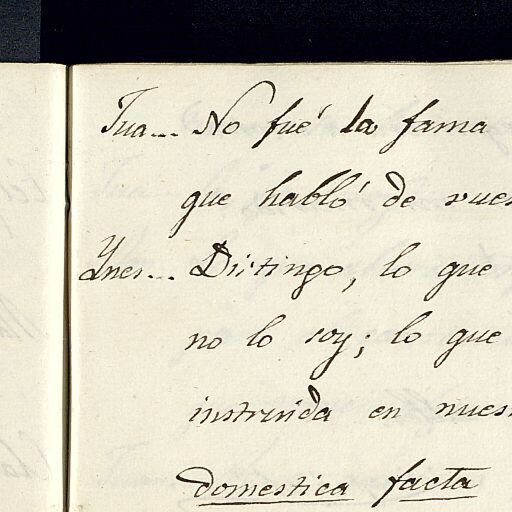 Jua... No fué la fama
que habló de vues
Ynes... Distingo, lo que
no lo soy; lo que
instruida en nues
domestica facta